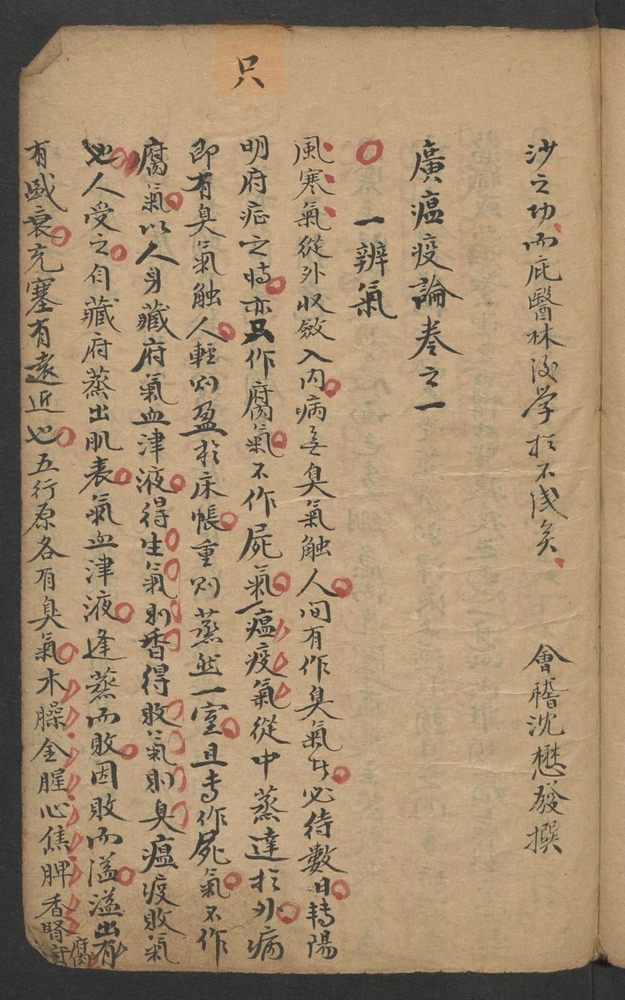 只
沙之功而庇醫林後学於不淺矣 會稽沈懋發撰
廣瘟疫論卷之一
一辨氣
風寒氣從外收斂入內病無臭氣觸人間有作臭氣者必待數日轉陽
明府症之時亦只作腐氣不作屍氣瘟疫氣從中蒸達於外病
即有臭氣觸人輕則盈於床帳重則蒸然一室且專作屍氣不作
腐氣以人身藏府氣血津液得生氣則香得敗氣則臭瘟疫敗氣
也人受之自藏府蒸出肌表氣血津液逢蒸而敗因敗而溢溢出有
有盛衰充塞有遠近也五行原各有臭氣木臊金腥心焦脾香腎腐